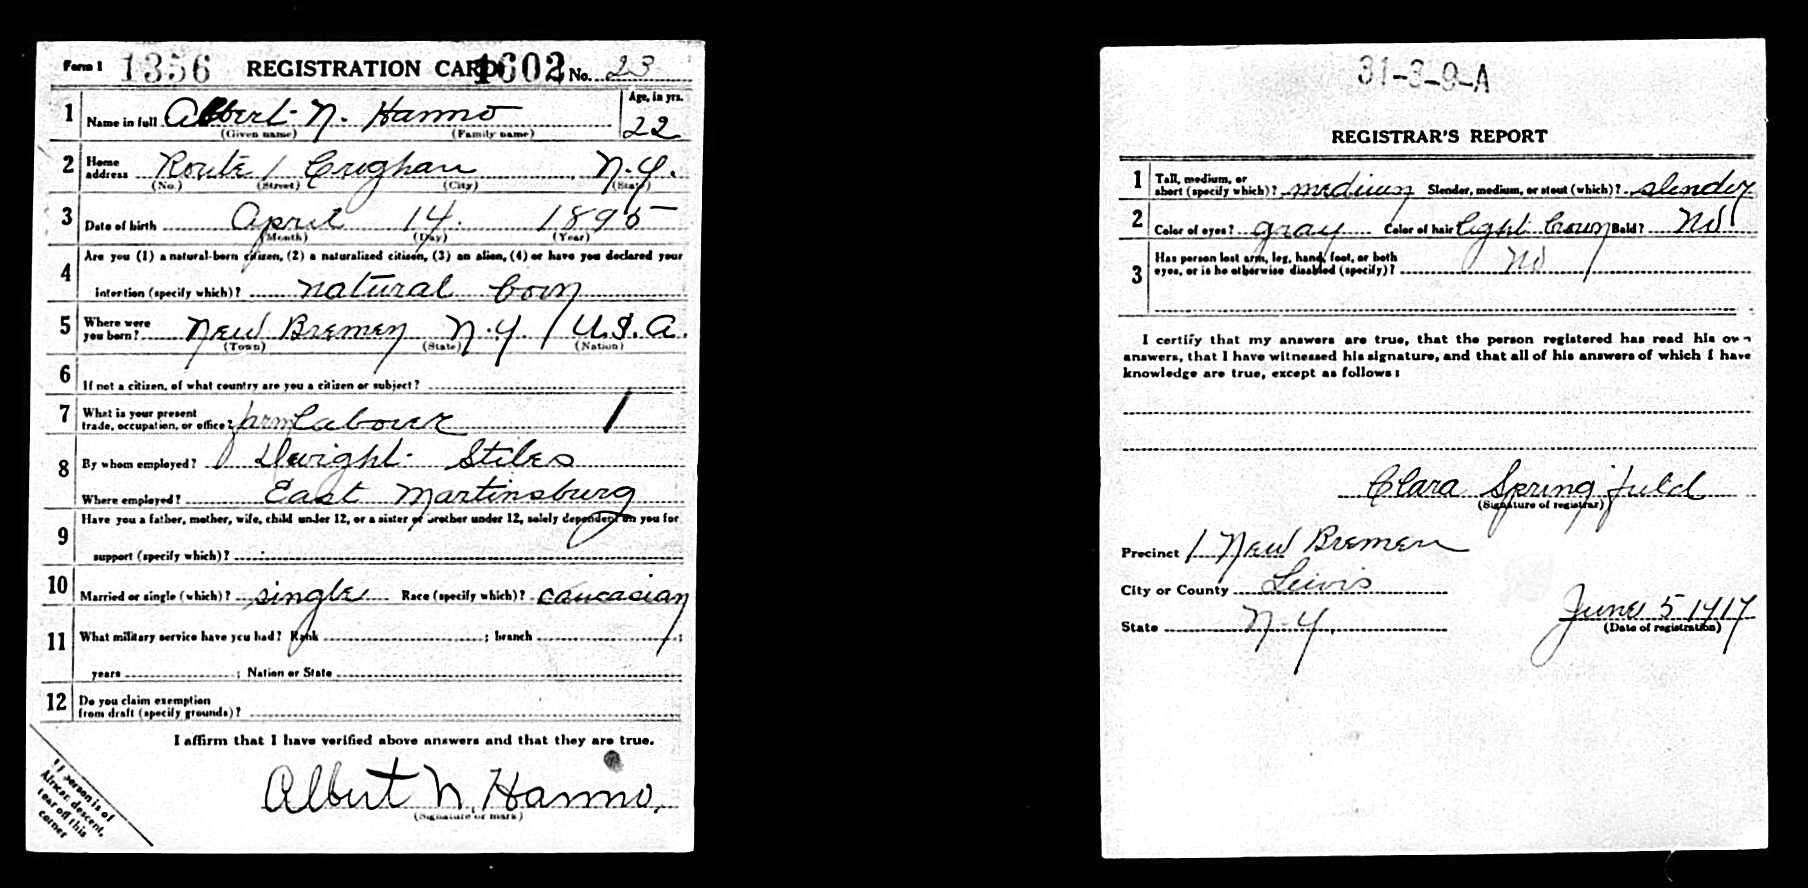 Form 1 1356 REGISTRATION CARD 1602 No. 23
1 Name in full Albert N. Hanno Age, in yrs. 22
(Given name) (Family name)
2 Home address Route 1 Croghan, N.Y.
(No.) (Street) (City) (State)
3 Date of birth April 14. 1895
(Month) (Day) (Year)
4 Are you (1) a natural-born citizen, (2) a naturalized citizen, (3) an alien, (4) or have you declared your
intention (specify which)? natural born
5 Where were you born? New Bremen N.Y. / U.S.A.
(Town) (State) (Nation)
6 If not a citizen, of what country are you a citizen or subject?
7 What is your present trade, occupation, or office? farm Laborer 1
8 By whom employed? Dwight Stiles
Where employed? East Martinsburg
9 Have you a father, mother, wife, child under 12, or a sister or brother under 12, solely dependent on you for
support (specify which)?
10 Married or single (which)? single Race (specify which)? caucasian
11 What military service have you had? Rank ; branch ;
years ; Nation or State
12 Do you claim exemption from draft (specify grounds)?
I affirm that I have verified above answers and that they are true.
Albert N. Hanno.
(Signature or mark)
If person is of
African descent,
tear off this
corner
31-3-9-A
REGISTRAR'S REPORT
1 Tall, medium, or short (specify which)? medium Slender, medium, or stout (which)? slender
2 Color of eyes? gray Color of hair light brown Bald? No
3 Has person lost arm, leg, hand, foot, or both eyes, or is he otherwise disabled (specify)? No
I certify that my answers are true, that the person registered has read his own
answers, that I have witnessed his signature, and that all of his answers of which I have
knowledge are true, except as follows:
Clara Springfield
(Signature of registrar)
Precinct 1 New Bremen
City or County Lewis
State N.Y. June 5 1917
(Date of registration)